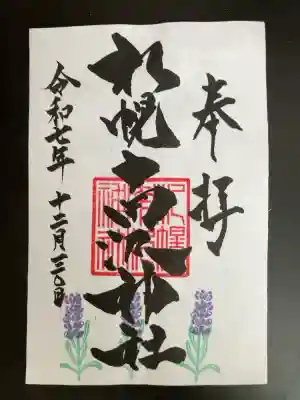 奉拝
札幌南沢神社
令和七年 十二月三〇日